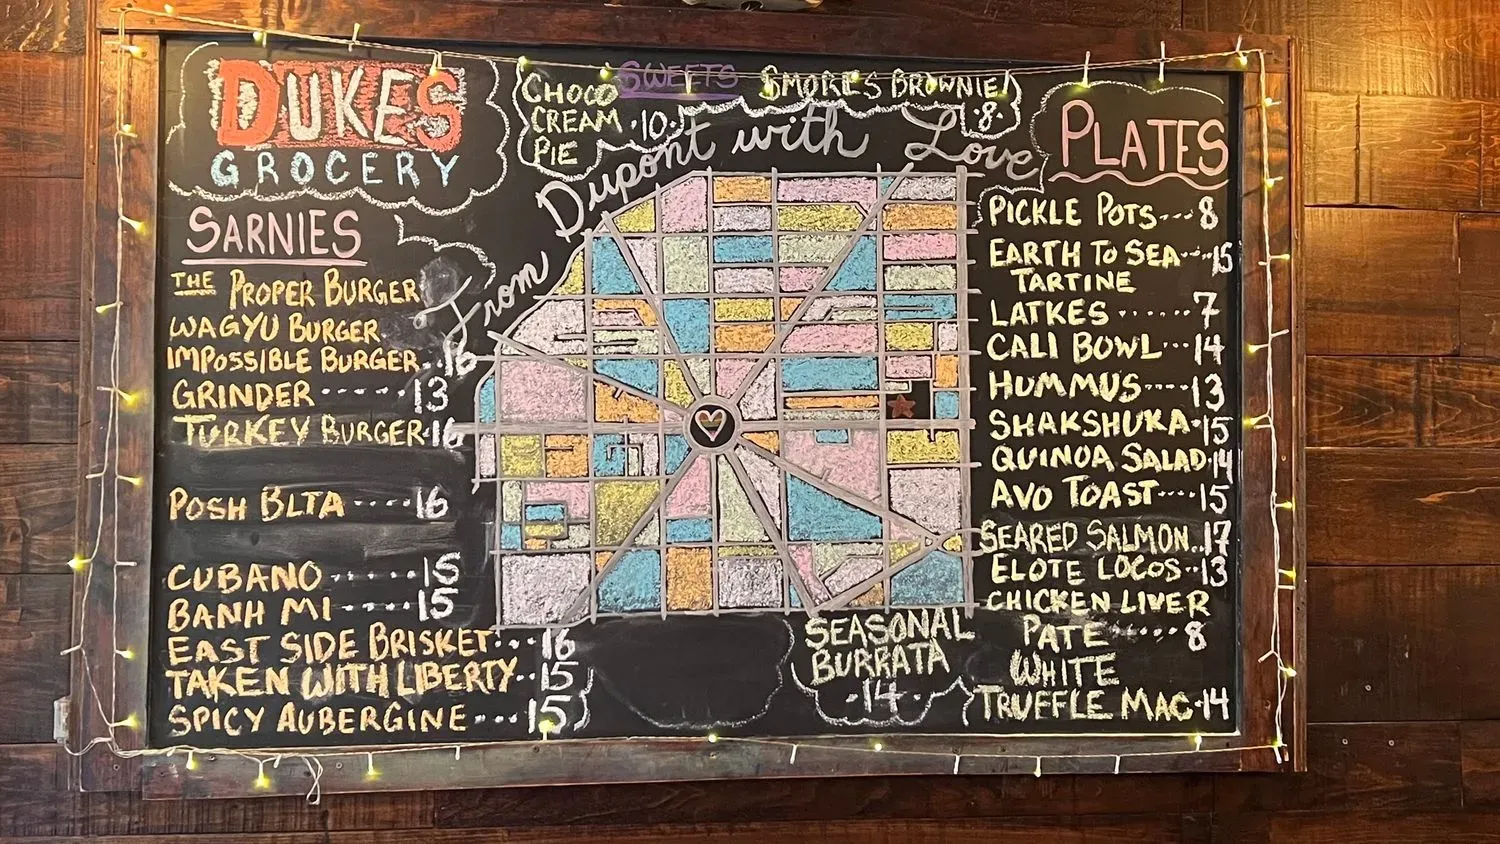 DUKES
GROCERY
SARNIES
THE PROPER BURGER
WAGYU BURGER
IMPOSSIBLE BURGER..16
GRINDER-----13
TURKEY BURGER·16
POSH BLTA----16
CUBANO------15
BANH MI----15
EAST SIDE BRISKET...16
TAKEN WITH LIBERTY..15
SPICY AUBERGINE---15
SWEETS
CHOCO
CREAM ·10·
PIE
SMORES BROWNIE
·8·
From Dupont with Love
SEASONAL
BURRATA
·14·
PLATES
PICKLE POTS---8
EARTH TO SEA---15
TARTINE
LATKES ......7
CALI BOWL---14
HUMMUS----13
SHAKSHUKA·15
QUINOA SALAD·14
AVO TOAST----15
SEARED SALMON..17
ELOTE LOCOS--13
CHICKEN LIVER
PATE ·····8
WHITE
TRUFFLE MAC·14